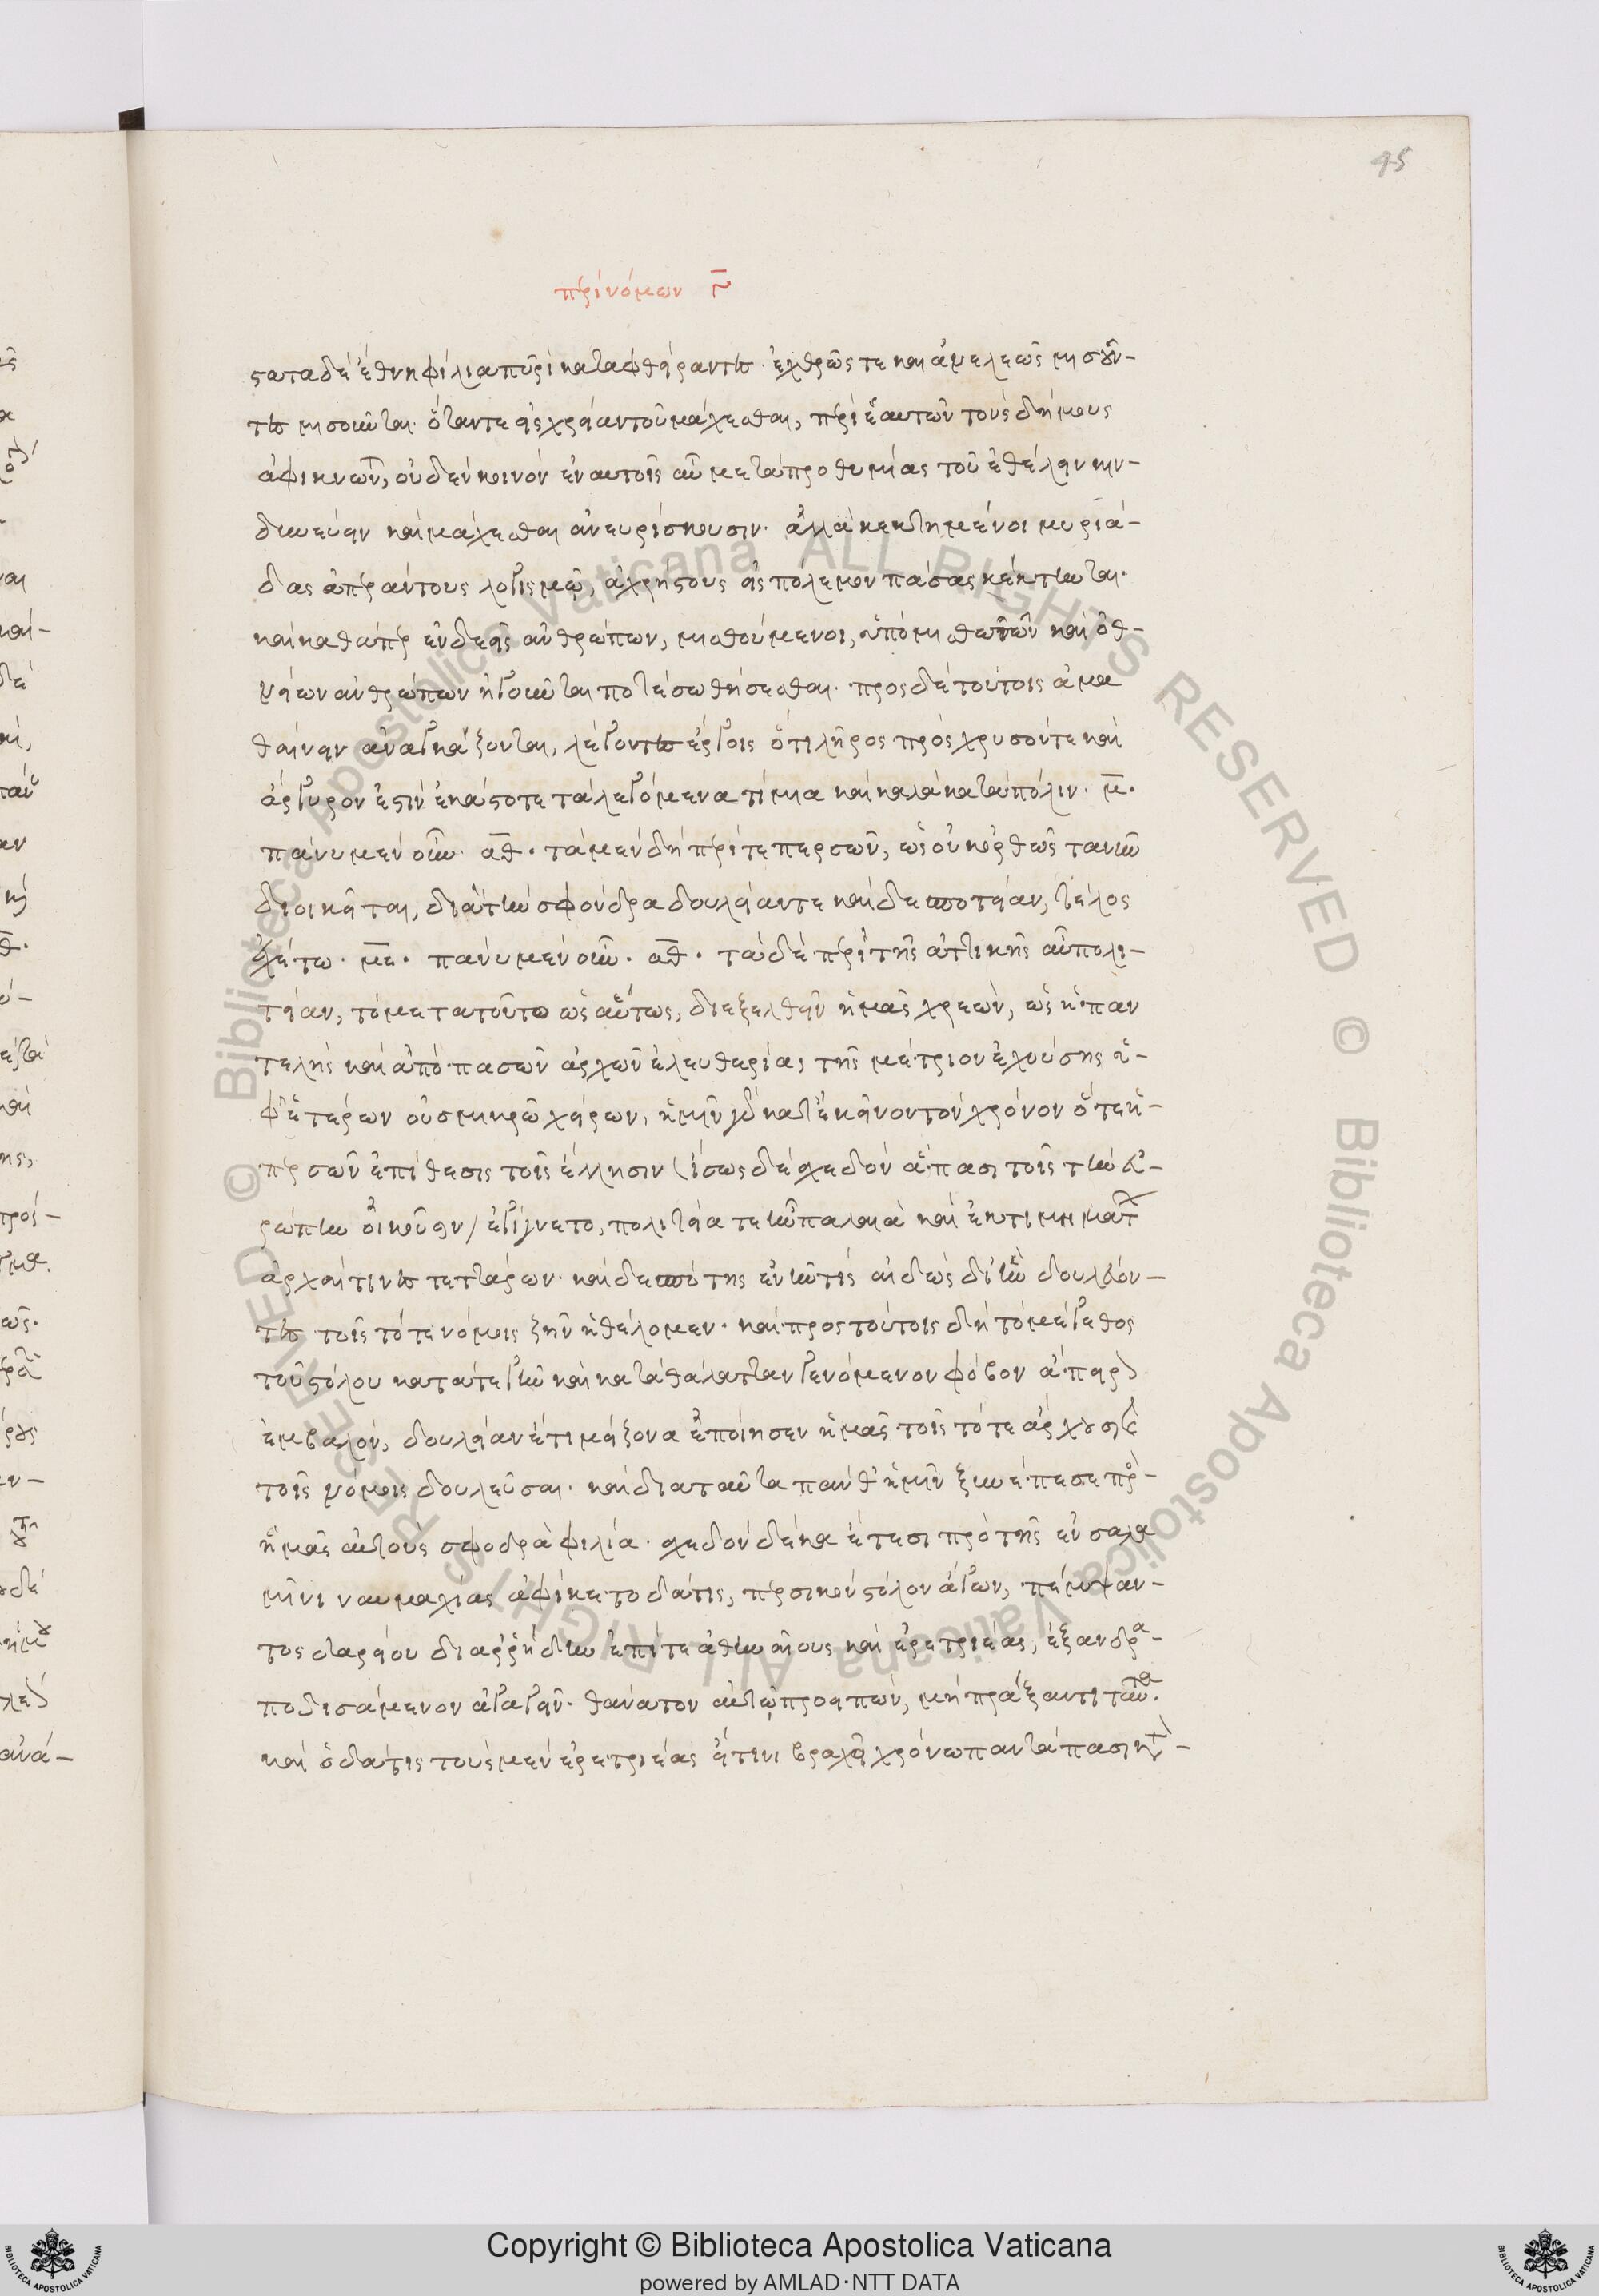 95
περὶ νόμων γ
στατα δὲ ἔθνη φίλια πυρὶ καταφθείραντες. ἐχθρῶς τε καὶ ἀνελεῶς μισοῦν-
τες μισοῦνται. ὅταν τε εἰς χρείαν τοῦ μάχεσθαι, περὶ ἑαυτῶν τοὺς δήμους
ἀφικνῶντ, οὐδὲν κοινὸν ἐν αὐτοῖς αὖ μετὰ προθυμίας τοῦ ἐθέλειν κιν-
δυνεύειν καὶ μάχεσθαι ἀνευρίσκουσιν. ἀλλὰ κεκτημένοι μυριά-
δας ἀπεράντους λογισμῷ, ἀχρήστους εἰς πόλεμον πάσας κέκτηνται.
καὶ καθάπερ ἐνδεεῖς ἀνθρώπων, μισθούμενοι, ὑπὸ μισθωτῶν καὶ ὀθ-
νείων ἀνθρώπων ἡγοῦνται ποτὲ σωθήσεσθαι. πρὸς δὲ τούτοις ἀμα
θαίνειν ἀναγκάζονται, λέγοντες ἔργοις ὅτι λῆρος πρὸς χρυσόν τε καὶ
ἄργυρον ἐστὶν ἑκάστοτε τὰ λεγόμενα τίμια καὶ καλὰ κατὰ πόλιν. με.
πάνυ μὲν οὖν. αθ. τὰ μὲν δὴ περί τε περσῶν, ὡς οὐκ ὀρθῶς τανῦν
διοικεῖται, διὰ τὴν σφόνδρα δουλείαν τε καὶ δεσποτείαν, τέλος
ἐχέτω. με. πάνυ μὲν οὖν. αθ. τὰ δὲ περὶ τῆς ἀττικῆς αὖ πολι-
τείαν, τὸ μετὰ τοῦτο ὡσαύτως, διεξελθεῖν ἡμᾶς χρεὼν, ὡς ἡ παν
τελὴς καὶ ἀπὸ πασῶν ἀρχῶν ἐλευθερία, τῆς μέτριον ἐχούσης ὑ-
φ' ἑτέρων οὐ σμικρῷ χείρων, ἡμῖν γὰρ κατ' ἐκεῖνον τὸν χρόνον ὅτε ἡ-
περσῶν ἐπίθεσις τοῖς ἕλλησιν (ἴσως δὲ σχεδὸν ἅπασι τοῖς τὴν εὐ-
ρώπην οἰκοῦσιν) ἐγίγνετο, πολιτεία τε ἦν παλαιὰ καὶ ἐκ τιμημάτ
ἀρχαί τινες τεττάρων. καὶ δεσπότης ἐνῆν τίς αἰδὼς δι' ἣν δουλεύον-
τες τοῖς τότε νόμοις ζῆν ἠθέλομεν. καὶ πρὸς τούτοις δὴ τὸ μέγεθος
τοῦ στόλου κατά τε γῆν καὶ κατὰ θάλατταν γενόμενον φόβον ἄπειρον
ἐμβαλὸν, δουλείαν ἔτι μείζονα ἐποίησεν ἡμᾶς τοῖς τότε ἄρχουσι καὶ
τοῖς νόμοις δουλεῦσαι. καὶ διὰ ταῦτα πάνθ' ἡμῖν ξυνέπεσε πρὸ-
ἡμᾶς αὐτοὺς σφοδρὰ φιλία. σχεδὸν δέκα ἔτεσι πρὸ τῆς ἐν σαλα
μῖνι ναυμαχίας ἀφίκετο δάτις, περσικὸν στόλον ἄγων, πέμψαν-
τος δαρείου διαρρήδην ἐπί τε ἀθηναίους καὶ ἐρετριέας, ἐξανδρα-
ποδισάμενον ἀγαγεῖν. θάνατον αὐτῷ προειπὼν, μὴ πράξαντι ταῦτα.
καὶ ὁ δάτις τοὺς μὲν ἐρετριέας ἔν τινι βραχεῖ χρόνω παντάπασι κατ-
Copyright © Biblioteca Apostolica Vaticana
powered by AMLAD·NTT DATA